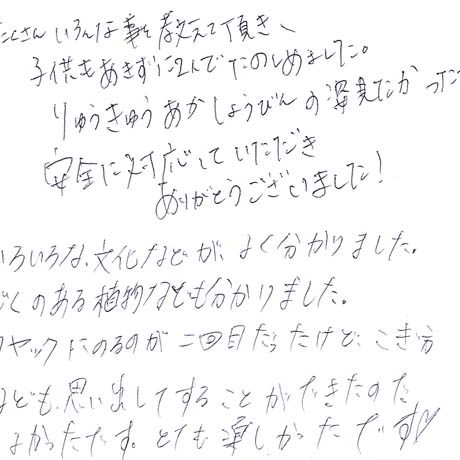 たくさんいろんな事を教えて頂き、
子供もあきずに2人でたのしめました。
りゅうきゅうあかしょうびんの姿見たかった
安全に対応していただき
ありがとうございました！
いろいろな、文化などが、よく分かりました。
どくのある植物なども分かりました。
ヤックにのるのが二回目だったけど、こぎ方
なども、思い出してすることができたので
よかったです。とても楽しかったです♡